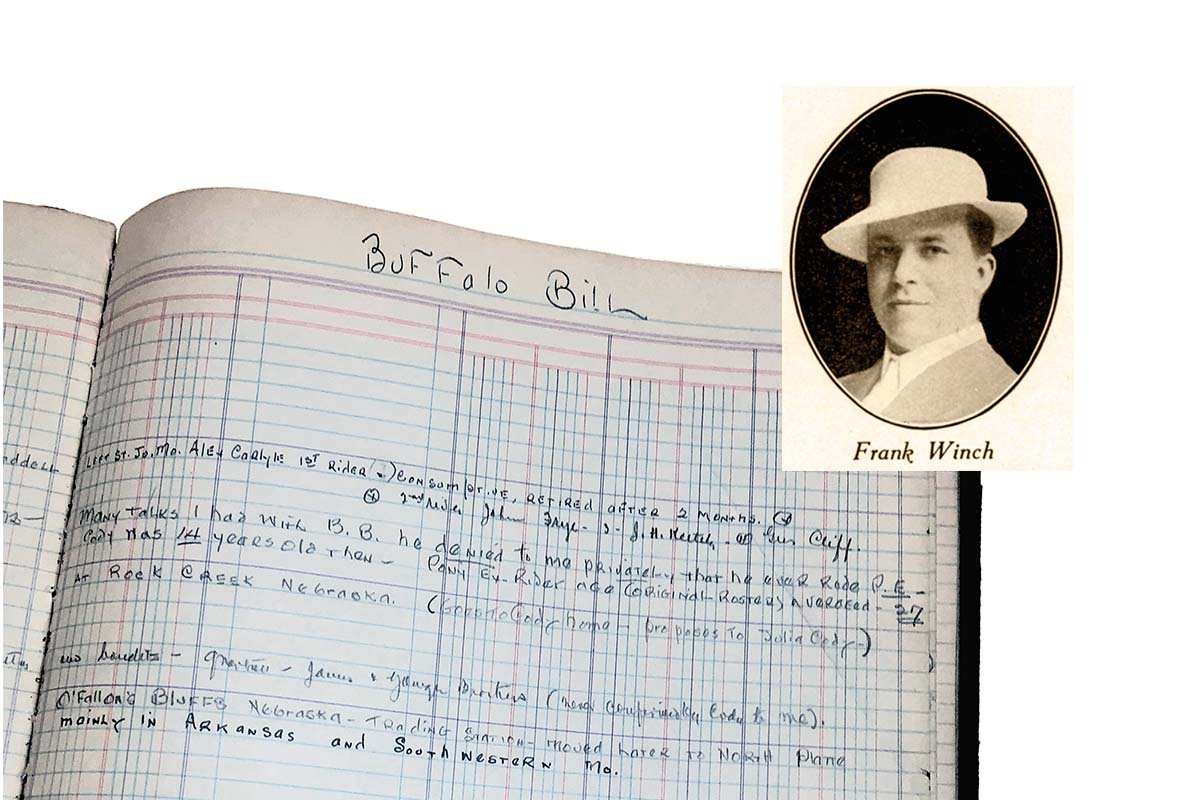 Buffalo Bill
Left St. Jo. Mo. Alex Carlyle 1st Rider Consumptive, retired after 2 months.
2nd rider John Frye - J. H. Keetch - Gus Cliff.
Many talks I had with B.B. he denied to me privately that he ever rode P.E. -
Cody was 14 years old then - Pony Ex. Rider age (original Roster) averaged - 27
At Rock Creek Nebraska. (Goes to Cody home - proposes to Julia Cody -)
- James & Younger Brothers
O'Fallon's Bluffs Nebraska - Trading Station - moved later to North Platte
mainly in Arkansas and South Western Mo.
Frank Winch